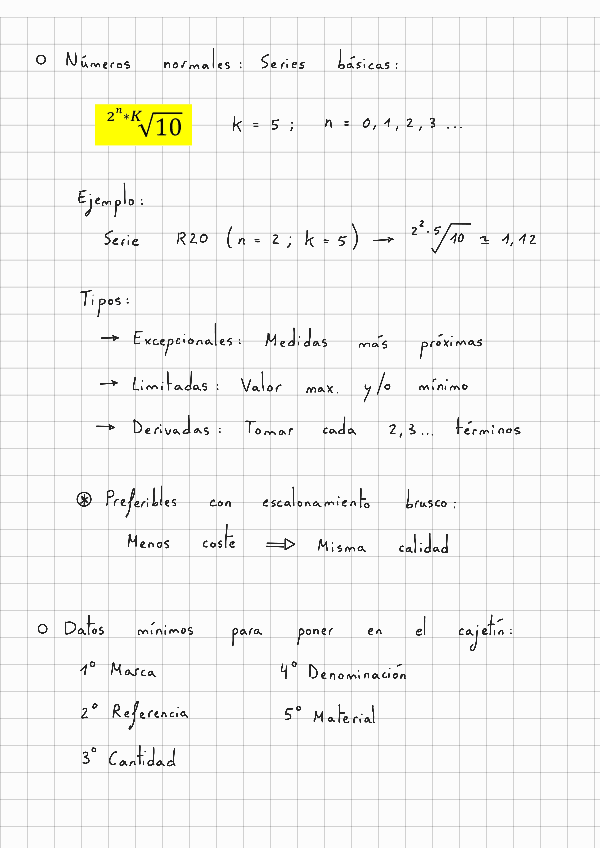 ○ Números normales: Series básicas:
2ⁿ*K√10 k = 5 ; n = 0, 1, 2, 3 ...
Ejemplo:
Serie R20 (n = 2 ; k = 5) → 2²·5√10 ≃ 1,12
Tipos:
→ Excepcionales: Medidas más próximas
→ Limitadas: Valor max. y/o mínimo
→ Derivadas: Tomar cada 2,3... términos
⊛ Preferibles con escalonamiento brusco:
Menos coste ⇒ Misma calidad
○ Datos mínimos para poner en el cajetín:
1º Marca 4º Denominación
2º Referencia 5º Material
3º Cantidad